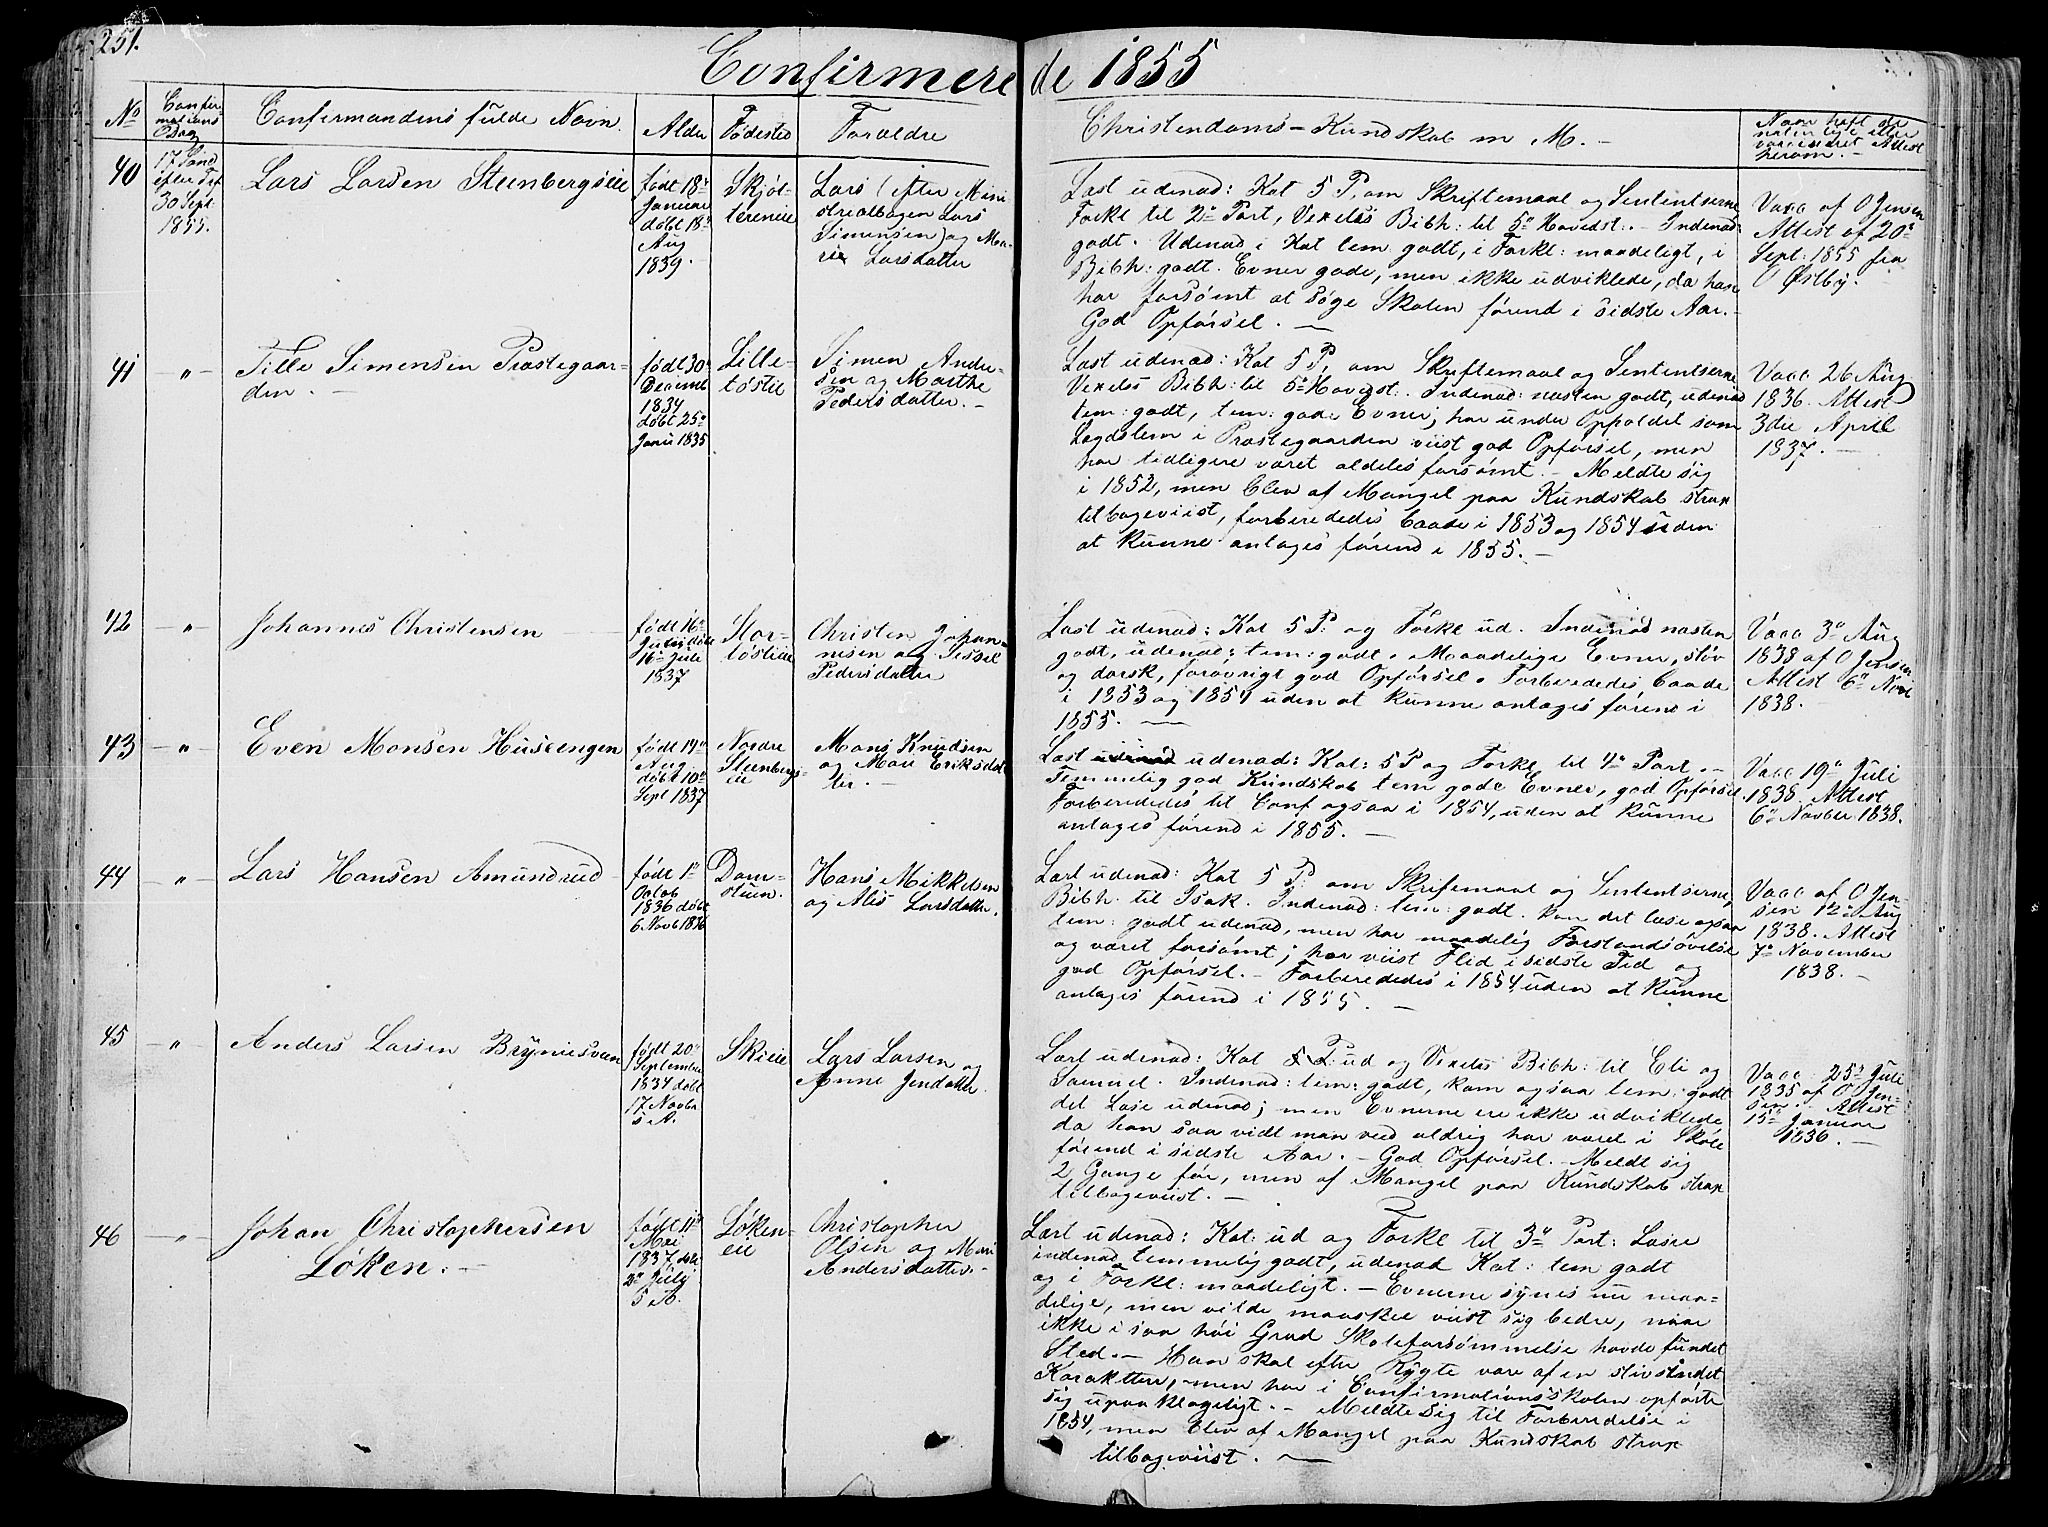 251.
Confirmerede 1855
No
Confir
mations
Dag
Confirmandens fulde Navn.
Alder
Fødested
Forældre
Christendoms-Kundskab m M. -
Naar haft de
naturlige eller
vaccineret Attest
herom. -
40
17 Sønd
efter Tref
30 Sept
1855.
Lars Larsen Steenbergseie
født 18de
Januar
døbt 18de
Aug
1839.
Skjøl-
tereneie
Lars (efter Mini
sterialbogen Lars
Simensen) og Ma-
rie Larsdatter
Læst udenad: Kat 5 P. om Skriftemaal og Sententserne
Forkl til 2den Part, Vexels Bibh: til 5te Hovedst:. - Indenad
godt. Udenad i Kat tem godt, i Forkl: maadeligt, i
Bibh: godt. Evner gode, men ikke udviklede, da han
har forsømt at søge Skolen førend i sidste Aar. -
God Opførsel. -
Vacc af O Jensen
Attest af 20de
Sept: 1855 fra
O Østby.
41
- " -
Tille Simensen Præstegaar-
den. -
født 30te
Decemb
1834
døbt 25de
Janu 1835
Lille-
tøstie
Simen Andre-
sen og Marthe
Pedersdatter. -
Læst udenad: Kat 5 P. om Skriftemaal og Sententserne
Vexels Bibh: til 5te Hovedst:. Indenad: næsten godt, udenad
tem: godt, tem: gode Evner; har under Opholdet som
Lægdslem i Præstegaarden viist god Opførsel, men
har tidligere været aldeles forsømt. - Meldte sig
i 1852, men blev af Mangel paa Kundskab strax
tilbageviist, forberededes baade i 1853 og 1854 uden
at kunne antages førend i 1855. -
Vacc 26 Aug
1836. Attest
3die April
1837. -
42
- " -
Johannes Christensen
født 16de
Juli døbt
16de Juli
1837
Stor-
tøstieie
Christen Johan-
nesen og Sissel
Pedersdatter
Læst udenad: Kat 5 P: og Forkl ud. Indenad næsten
godt, udenad: tem: godt. Maadelige Evner, sløv
og dorsk, forøvrigt god Opførsel. Forberededes baade
i 1853 og 1854 uden at kunne antages førend i
1855. -
Vacc 3de Aug
1838 af O Jensen
Attest 6te Novb
1838. -
43
- " -
Even Monsen Huseengen
født 14de
Aug
døbt 10de
Sept 1837
Nordre
Steenbergs-
eie
Mons Knudsen
og Mari Eriksdat-
ter. -
Læst udenad: Kat: 5 P og Forkl til 4de Part. -
Temmelig god Kundskab tem gode Evner, god Opførsel.
Forberededes til Conf ogsaa i 1854, uden at kunne
antages førend i 1855. -
Vacc 19de Juli
1838 Attest
6te Novber 1838.
44
- " -
Lars Hansen Amundrud
født 1ste
Octob
1836 døbt
6 Novb 1836
Dam-
stuen.
Hans Mikkelsen
og Alis Larsdatter.
Læst udenad: Kat 5 P: om Skriftemaal og Sententserne,
Bibh. til Isak. Indenad: tem: godt. kan det læse ogsaa
tem: godt udenad, men har maadelig Forstandsøvelse
og været forsømt; har viist Flid i sidste Tid og
god Opførsel. - Forberededes i 1854 uden at kunne
antages førend i 1855. -
Vacc af O Jen-
sen 12te Aug
1838. Attest
7de November
1838. -
45
- " -
Anders Larsen Bryniesvæen
født 20de
September
1834 døbt
17 Novbr
s A.
Skieie
Lars Larsen og
Anne Jensdatter.
Læst udenad: Kat 5 P: ud og Vexels Bibh: til Eli og
Samuel. Indenad: tem: godt, kan ogsaa tem: godt
det læse udenad; men Evnerne ere ikke udviklede
da han saa vidt man veed aldrig har været i Skole
førend i sidste Aar. - God Opførsel. - Meldt sig
2 Gange før, men af Mangel paa Kundskab strax
tilbageviist. -
Vacc 25de Juli
1835 af O Jen-
sen. Attest
15de Januar
1836. -
46
- " -
Johan Christophersen
Løken. -
født 11te
Mai
1837, døbt
2den July
s A.
Løken-
eie
Christopher
Olsen og Mari
Andersdatter. -
Læst udenad: Kat: ud og Forkl til 3die Part: Læser
indenad temmelig godt, udenad Kat: tem godt
og i Forkl: maadeligt. - Evnerne synes nu maa-
delige, men vilde maaskee viist sig bedre, naar
ikke i saa høi Grad Skoleforsømmelse havde fundet
Sted. - Han skal efter Rygte være af en stivsindet
Karakteer, men har i Confirmationsskolen opført
sig upaaklageligt. - Meldte sig til Forberedelse i
1854, men blev af Mangel paa Kundskab strax
tilbageviist. -